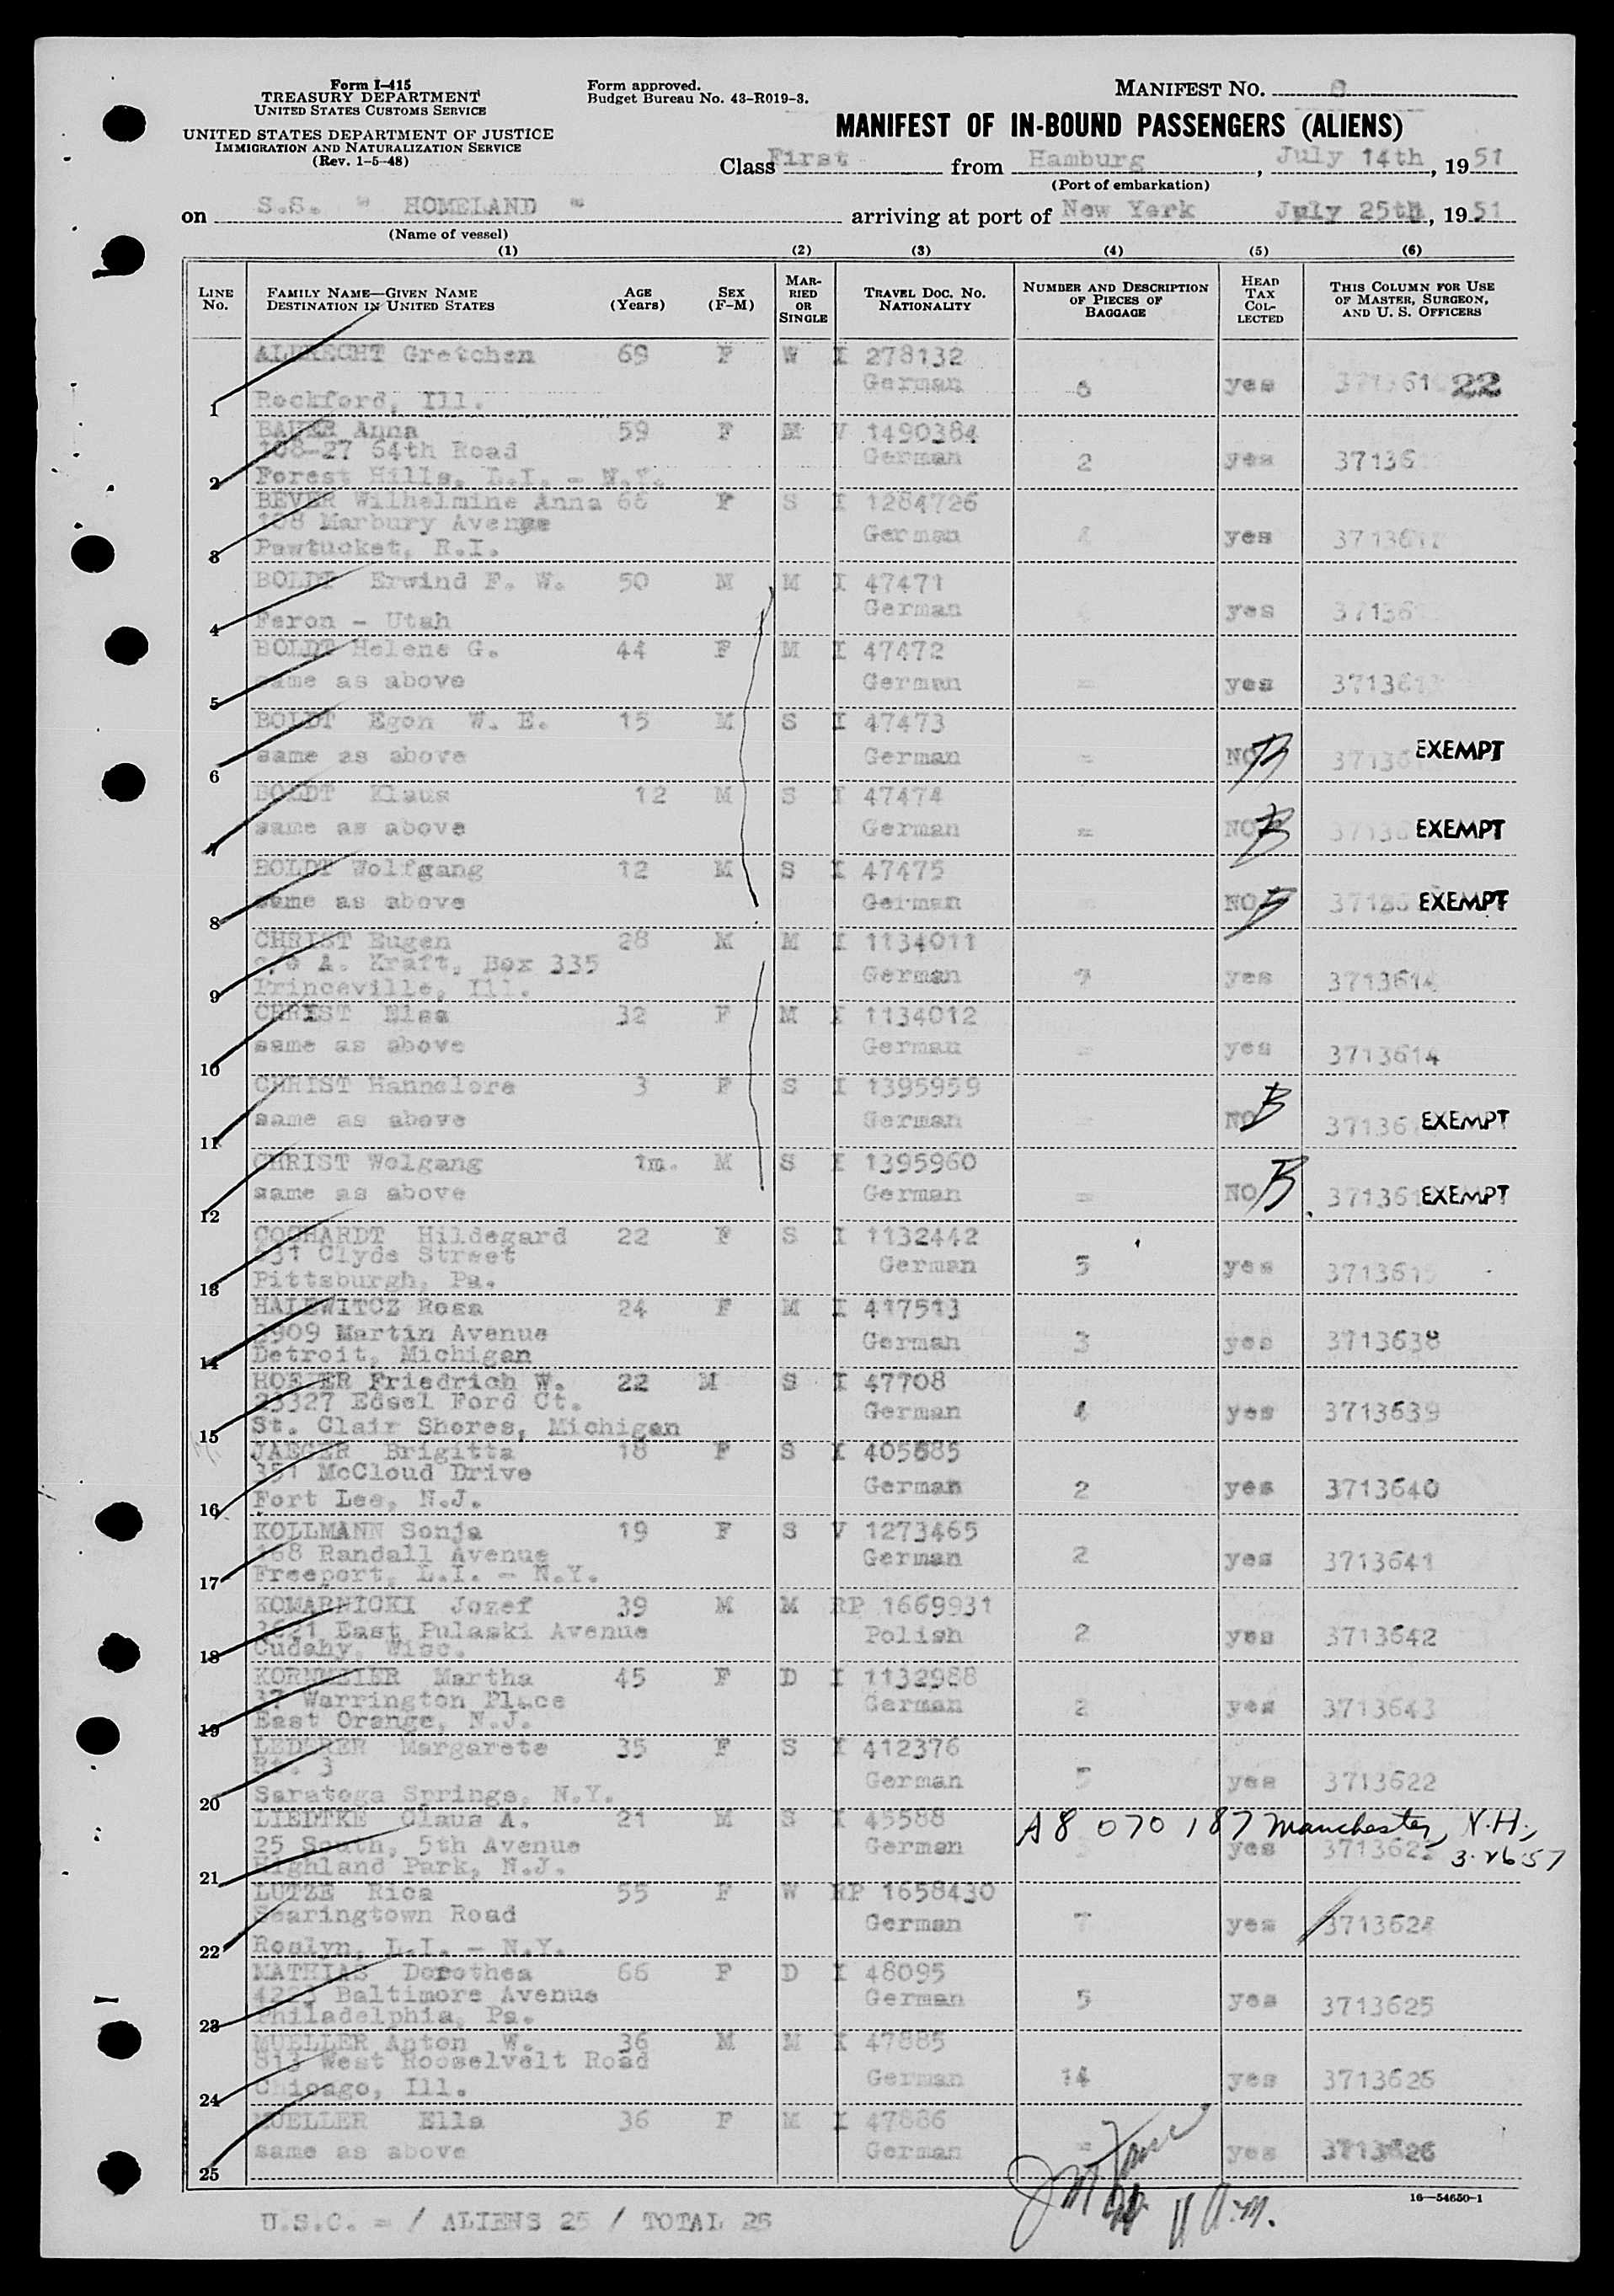 Form I-415
TREASURY DEPARTMENT
UNITED STATES CUSTOMS SERVICE
UNITED STATES DEPARTMENT OF JUSTICE
IMMIGRATION AND NATURALIZATION SERVICE
(Rev. 1-5-48)
Form approved.
Budget Bureau No. 43-R019-3.
MANIFEST NO.
MANIFEST OF IN-BOUND PASSENGERS (ALIENS)
Class First from Hamburg, July 14th, 1951
(Port of embarkation)
on S.S. " HOMELAND " arriving at port of New York July 25th, 1951
(Name of vessel)
(1) (2) (3) (4) (5) (6)
LINE NO. FAMILY NAME—GIVEN NAME DESTINATION IN UNITED STATES AGE (Years) SEX (F-M) MARRIED OR SINGLE TRAVEL DOC. NO. NATIONALITY NUMBER AND DESCRIPTION OF PIECES OF BAGGAGE HEAD TAX COLLECTED THIS COLUMN FOR USE OF MASTER, SURGEON, AND U. S. OFFICERS
ALBRECHT Gretchen 69 F W I 278132
German 6 yes 22
1 Rockford, Ill.
BAUER Anna 59 F M V 1490384
108-27 64th Road German 2 yes 37136
2 Forest Hills, L.I. - N.Y.
BEYER Wilhelmine Anna 66 F S I 1284726
108 Marbury Avenue German yes
3 Pawtucket, R.I.
BOLDT Erwind F. W. 50 M M I 47471
German yes 37136
4 Feron - Utah
BOLDT Helene G. 44 F M I 47472
5 same as above German = yes 371361
BOLDT Egon W. E. 15 M S I 47473
6 same as above German = NO B 37136 EXEMPT
BOLDT Klaus 12 M S I 47474
7 same as above German = NO B 37136 EXEMPT
BOLDT Wolfgang 12 M S I 47475
8 same as above German = NO B EXEMPT
CHRIST Eugen 28 M M I 1134011
c/o A. Kraft, Box 335 German 7 yes 3713614
9 Princeville, Ill.
CHRIST Elsa 32 F M I 1134012
10 same as above German = yes 3713614
CHRIST Hannelore 3 F S I 1395959
11 same as above German = NO B 37136 EXEMPT
CHRIST Wolgang 1m. M S I 1395960
12 same as above German = NO B 371361 EXEMPT
COCHARDT Hildegard 22 F S I 1132442
631 Clyde Street German 5 yes 3713615
13 Pittsburgh, Pa.
HALEWITCZ Rosa 24 F M I 417513
3909 Martin Avenue German 3 yes 3713638
14 Detroit, Michigan
HOFER Friedrich W. 22 M S I 47708
23327 Edsel Ford Ct. German 4 yes 3713639
15 St. Clair Shores, Michigan
JAEGER Brigitta 18 F S I 405685
351 McCloud Drive German 2 yes 3713640
16 Fort Lee, N.J.
KOLLMANN Sonja 19 F S V 1273465
168 Randall Avenue German 2 yes 3713641
17 Freeport, L.I. - N.Y.
KOMARNICKI Jozef 39 M M RP 1669931
3621 East Pulaski Avenue Polish 2 yes 3713642
18 Cudahy, Wisc.
KORNMEIER Martha 45 F D I 1132988
37 Warrington Place German 2 yes 3713643
19 East Orange, N.J.
LEDERER Margarete 35 F S I 412376
Rt. 3 German 5 yes 3713622
20 Saratoga Springs, N.Y.
LIEDTKE Claus A. 21 M S I 45588 A8 070 187 Manchester, N.H.,
25 South, 5th Avenue German 3 yes 3713623 3-26-57
21 Highland Park, N.J.
LUTZE Rica 55 F W RP 1658430
Searingtown Road German 7 yes 3713624
22 Roslyn, L.I. - N.Y.
MATHIAS Dorothea 66 F D I 48095
Baltimore Avenue German 5 yes 3713625
23 Philadelphia, Pa.
MUELLER Anton W. 36 M M I 47885
813 West Rooselvelt Road German 14 yes 3713626
24 Chicago, Ill.
MUELLER Ella 36 F M I 47886
25 same as above German = yes 3713626
16—54650-1
U.S.C. = / ALIENS 25 / TOTAL 25